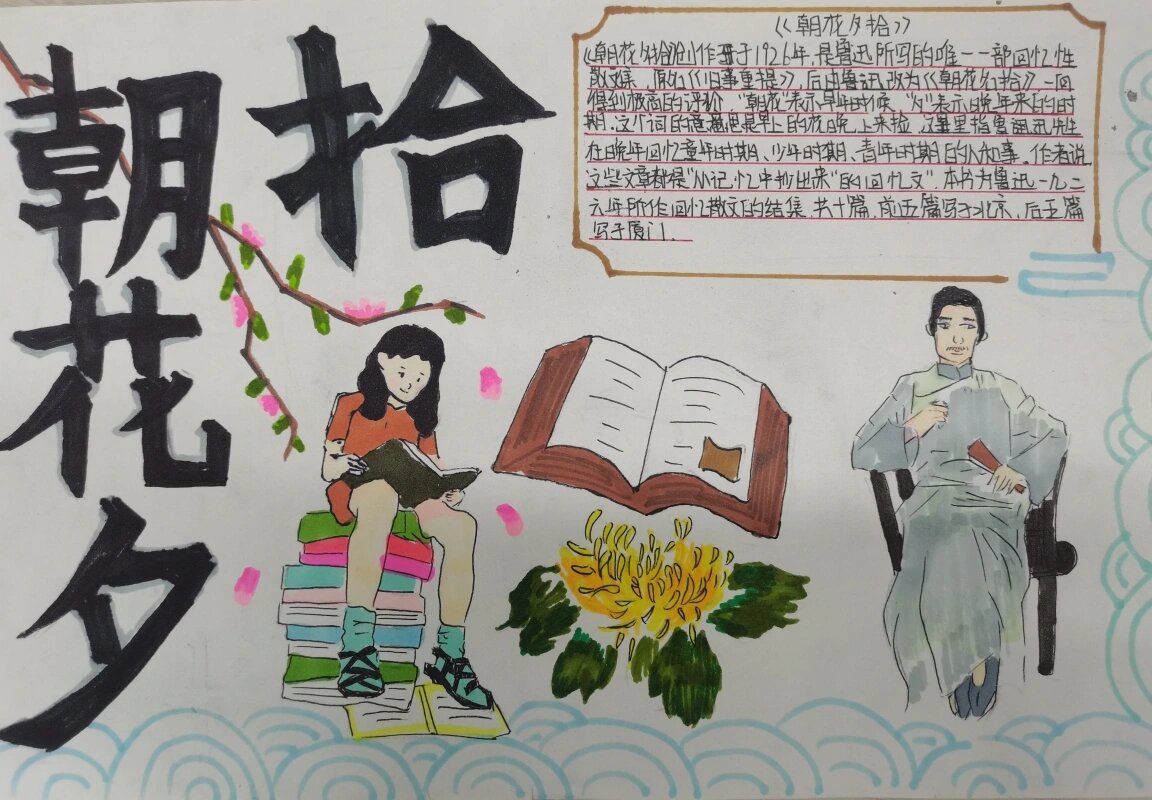 朝花夕拾
《朝花夕拾》
《朝花夕拾》创作于1926年,是鲁迅所写的唯一一部回忆性
散文集,原名《旧事重提》,后由鲁迅改为《朝花夕拾》一回
得到极高的评价."朝花"表示早年时候."夕"表示晚年来的时
期.这个词的意思是早上的花晚上来捡.这里里指鲁迅先生
在晚年回忆童年时期、少年时期、青年时期的人和事。作者说
这些文章都是"从记忆中抄出来"的回忆文".本书为鲁迅一九二
六年所作回忆散文的结集.共十篇,前五篇写于北京,后五篇
写于厦门.